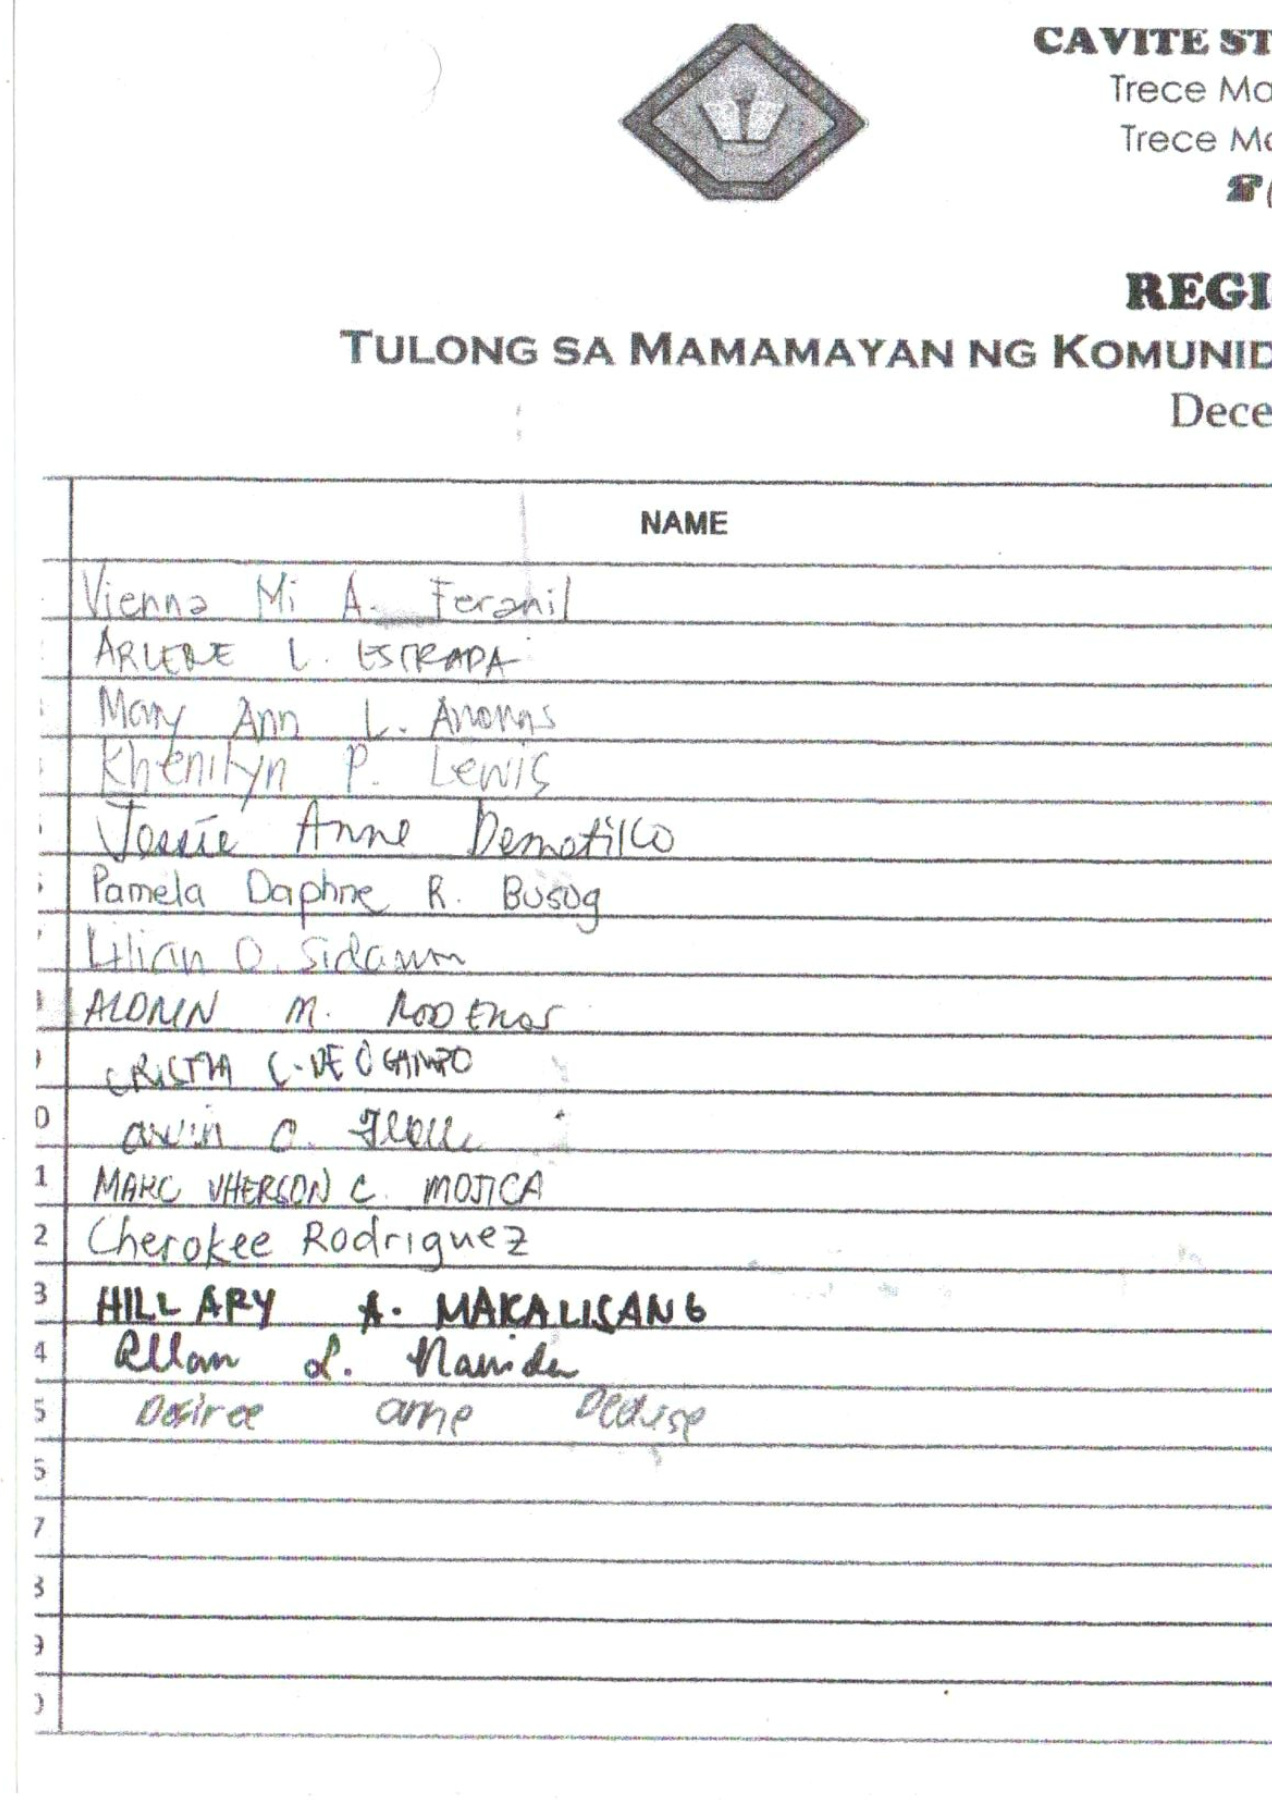 CAVITE ST
Trece Ma
Trece Ma
☎(
REGI
TULONG SA MAMAMAYAN NG KOMUNID
Dece
NAME
Vienna Mi A. Feranil
ARLENE L. ESTRADA
Mary Ann L. Anonas
Khenilyn P. Lewis
Jessie Anne Demotilco
Pamela Daphne R. Busog
Lilian O.
ALDRIN M. RODENOS
CRISTIA C. DE OCAMPO
0 O.
1 MARC VHERSON C. MOJICA
2 Cherokee Rodriguez
3 HILLARY A. MAKALISANG
4 Allan L.
5 Desiree anne
6
7
8
9
0